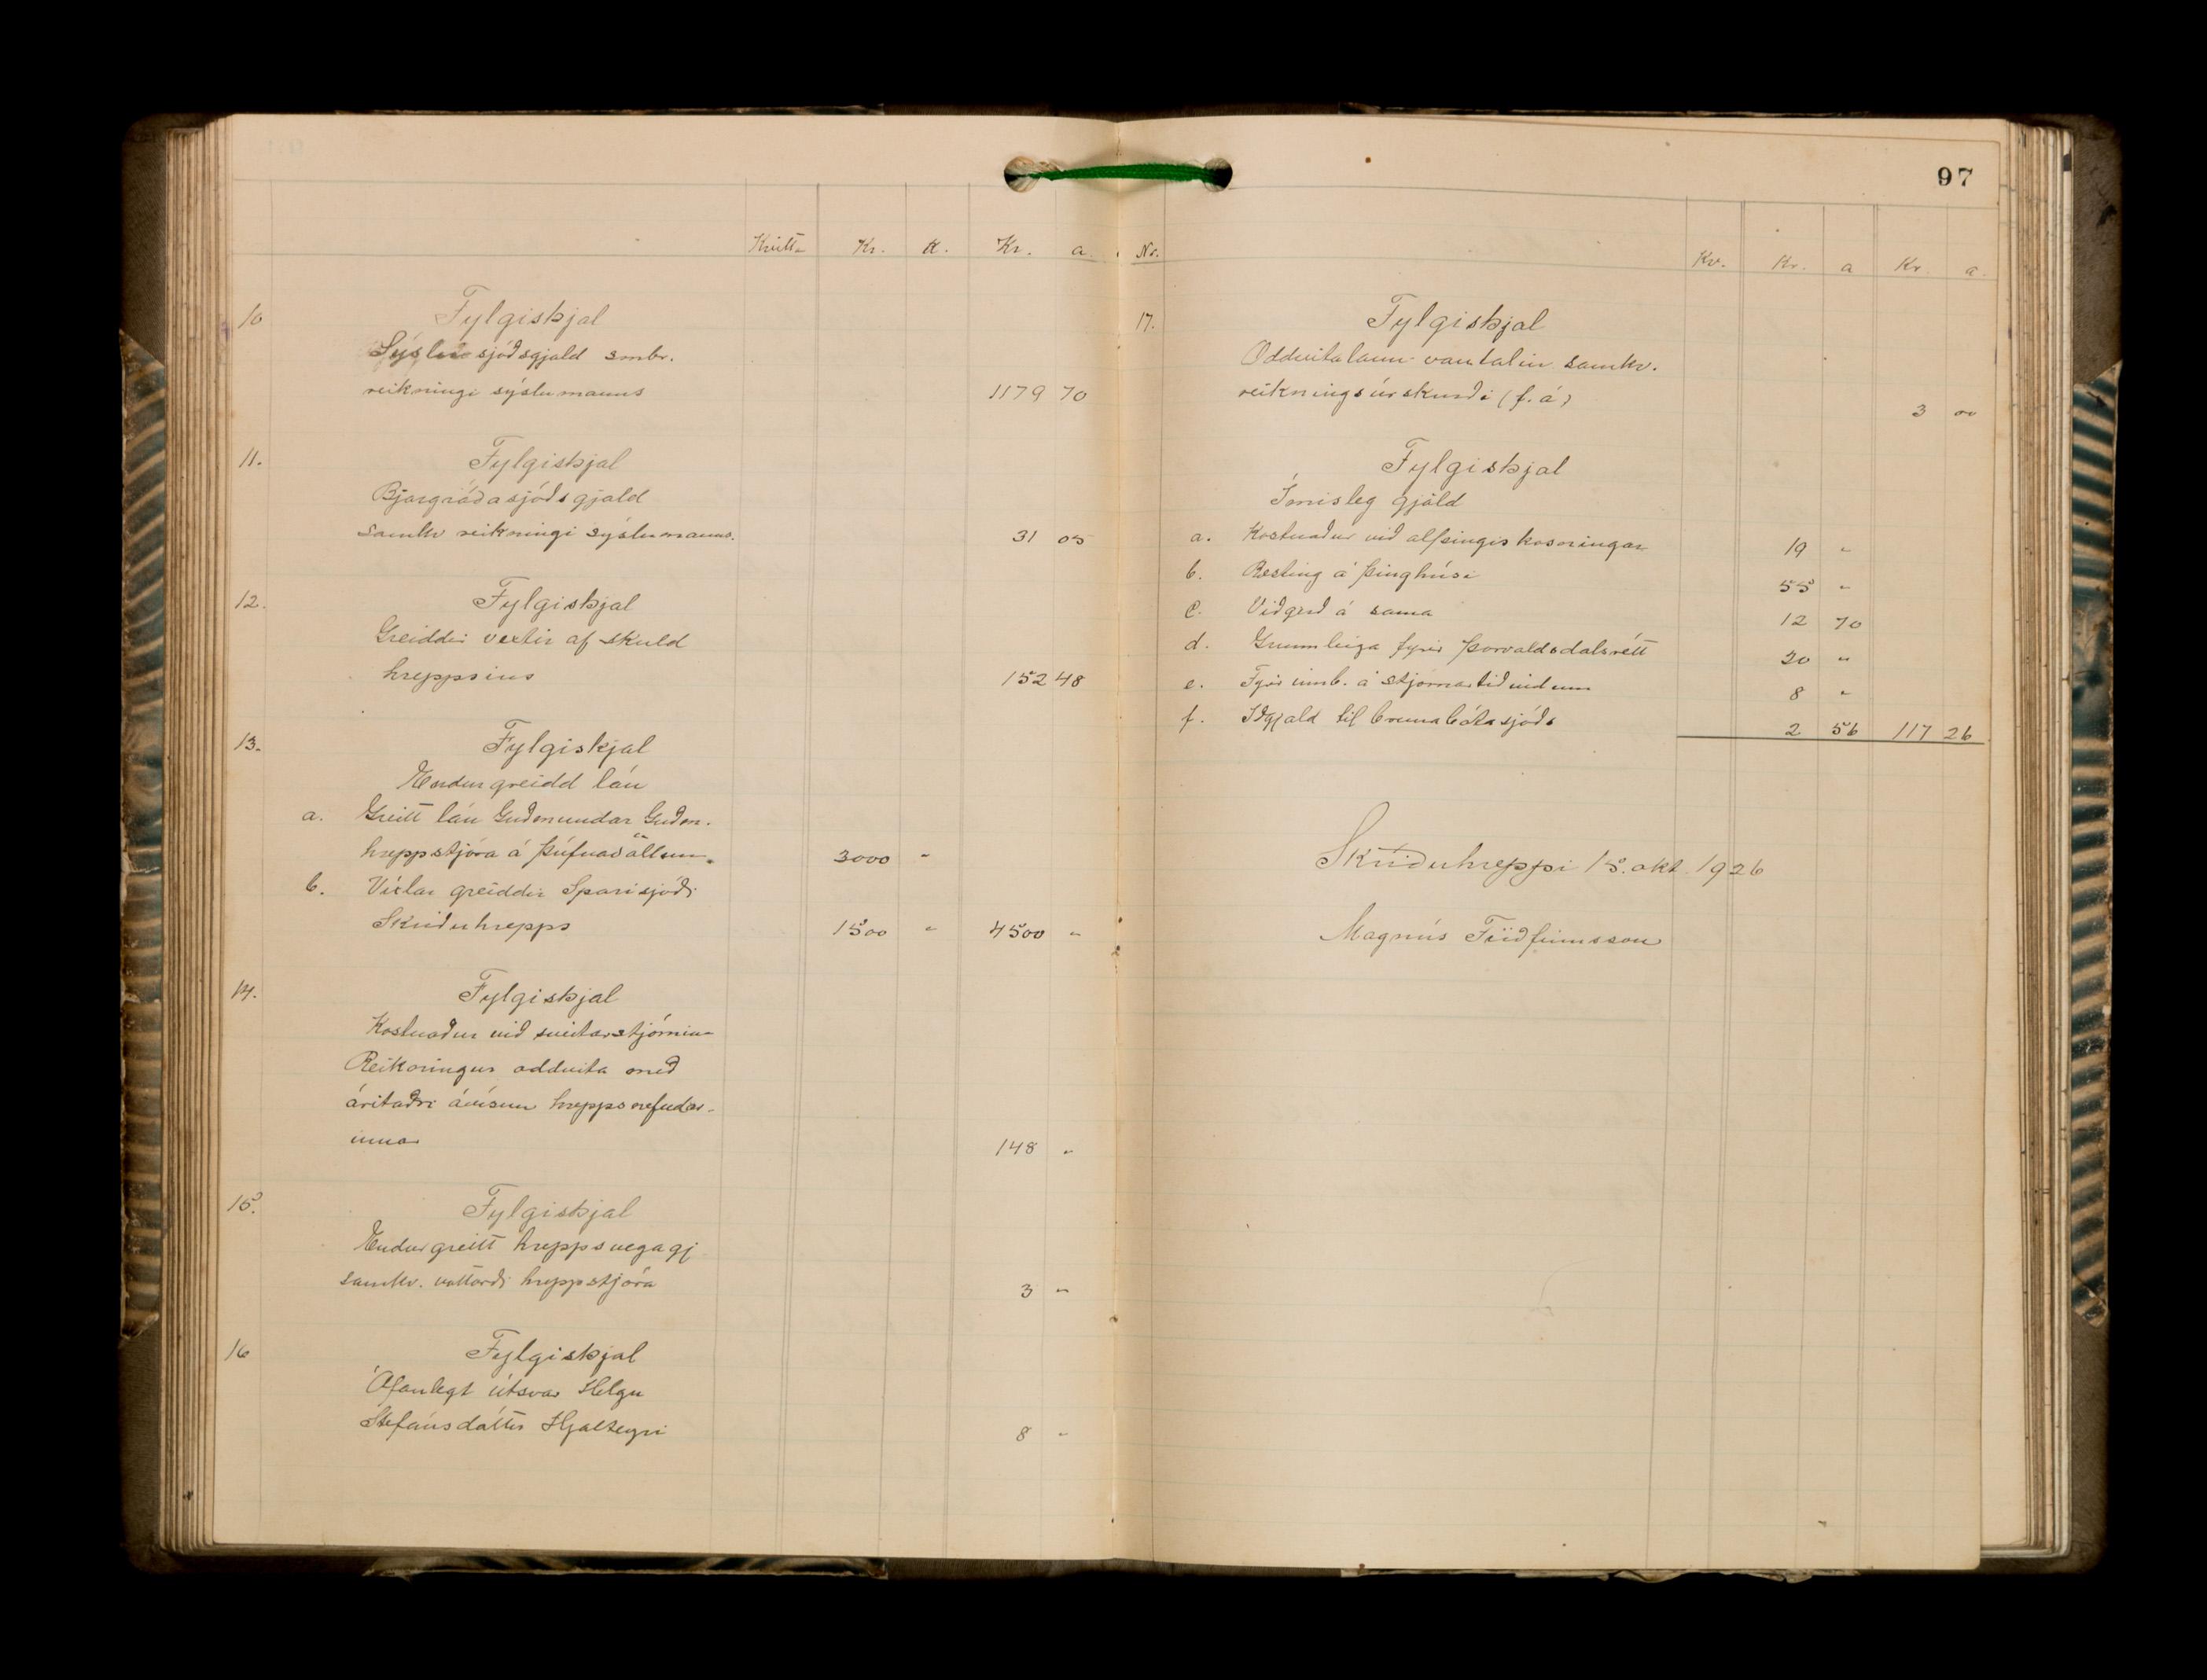 Kvitt- Kr. a. Kr. a.
10 Fylgiskjal
Sýslusjóðsgjald smbr.
reikningi sýslumanns 1179 70
11. Fylgiskjal
Bjargráðasjóðsgjald
samkv reikningi sýslumanns. 31 05
12. Fylgiskjal
Greiddir vextir af skuld
hreppsins 152 48
13. Fylgiskjal
Endurgreidd lán
a. Greitt lán Guðmundar Guðm.
hreppstjóra á Þúfnavöllum. 3000 "
b. Víxlar greiddir Sparisjóði
Skriðuhrepps 1500 " 4500 "
14. Fylgiskjal
Kostnaður við sveitarstjórnina
Reikningur oddvita með
áritaðri ávísun hreppsnefndar-
innar 148 "
15. Fylgiskjal
Endurgreitt hreppsvegagj
samkv. vottorði hreppstjóra 3 "
16 Fylgiskjal
Ófanlegt útsvar Helgu
Stefánsdóttir Hjalteyri 8 "
97
Nr. Kv. Kr. a Kr a.
17. Fylgiskjal
Oddvitalaun vantalin samkv.
reikningsúrskurði (f. á) 3 00
Fylgiskjal
Ímisleg gjöld
a. Kostnaður við alþingiskosningar 19 "
b. Ræsting á þinghúsi 55 "
c. Viðgerð á sama 12 70
d. Grunnleiga fyrir Þorvaldsdalsrétt 20 "
e. Fyrir innb. á stjórnartíðindum 8 "
f. Iðgjald til brunabótasjóðs 2 56 117 26
Skriðuhreppi 15. okt. 1926
Magnús Friðfinnsson